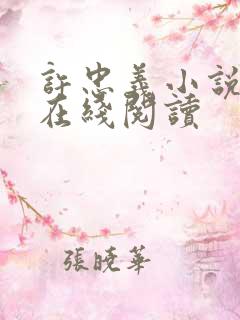 許忠義小說
在綫閱讀
張曉華